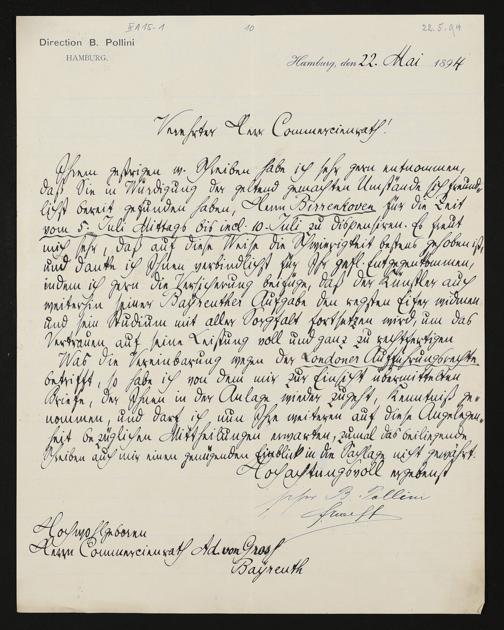 III A 15-1 10 22.5.94
Direction B. Pollini
HAMBURG.
Hamburg, den 22. Mai 1894
Verehrter Herr Commercienrath!
Ihrem gestrigen w. Schreiben habe ich sehr gern entnommen,
daß Sie in Würdigung der geltend gemachten Umstände sich freund-
lichst bereit gefunden haben, Herrn Birrenkoven für die Zeit
vom 5. Juli Mittags bis incl. 10. Juli zu dispensiren. Es freut
mich sehr, daß auf diese Weise die Schwierigkeit bestens gehoben ist,
und danke ich Ihnen verbindlichst für Ihr gefl. Entgegenkommen,
indem ich gern die Versicherung beifüge, daß der Künstler auch
weiterhin seiner Bayreuther Aufgabe den regsten Eifer widmen
und sein Studium mit aller Sorgfalt fortsetzen wird, um das
Vertrauen auf seine Leistung voll und ganz zu rechtfertigen
Was die Vereinbarung wegen der Londoner Aufführungsrechte
betrifft, so habe ich von dem mir zur Einsicht übermittelten
Briefe, der Ihnen in der Anlage wieder zugeht, Kenntniß ge-
nommen, und darf ich nun Ihre weiteren auf diese Angelegen-
heit bezüglichen Mittheilungen erwarten, zumal das beiliegende
Schreiben auch mir einen genügenden Einblick in die Sachlage nicht gewährt.
Hochachtungsvoll ergebenst
ppa B. Pollini
Hochwohlgeboren
Herrn Commercienrath Ad. von Gross
Bayreuth